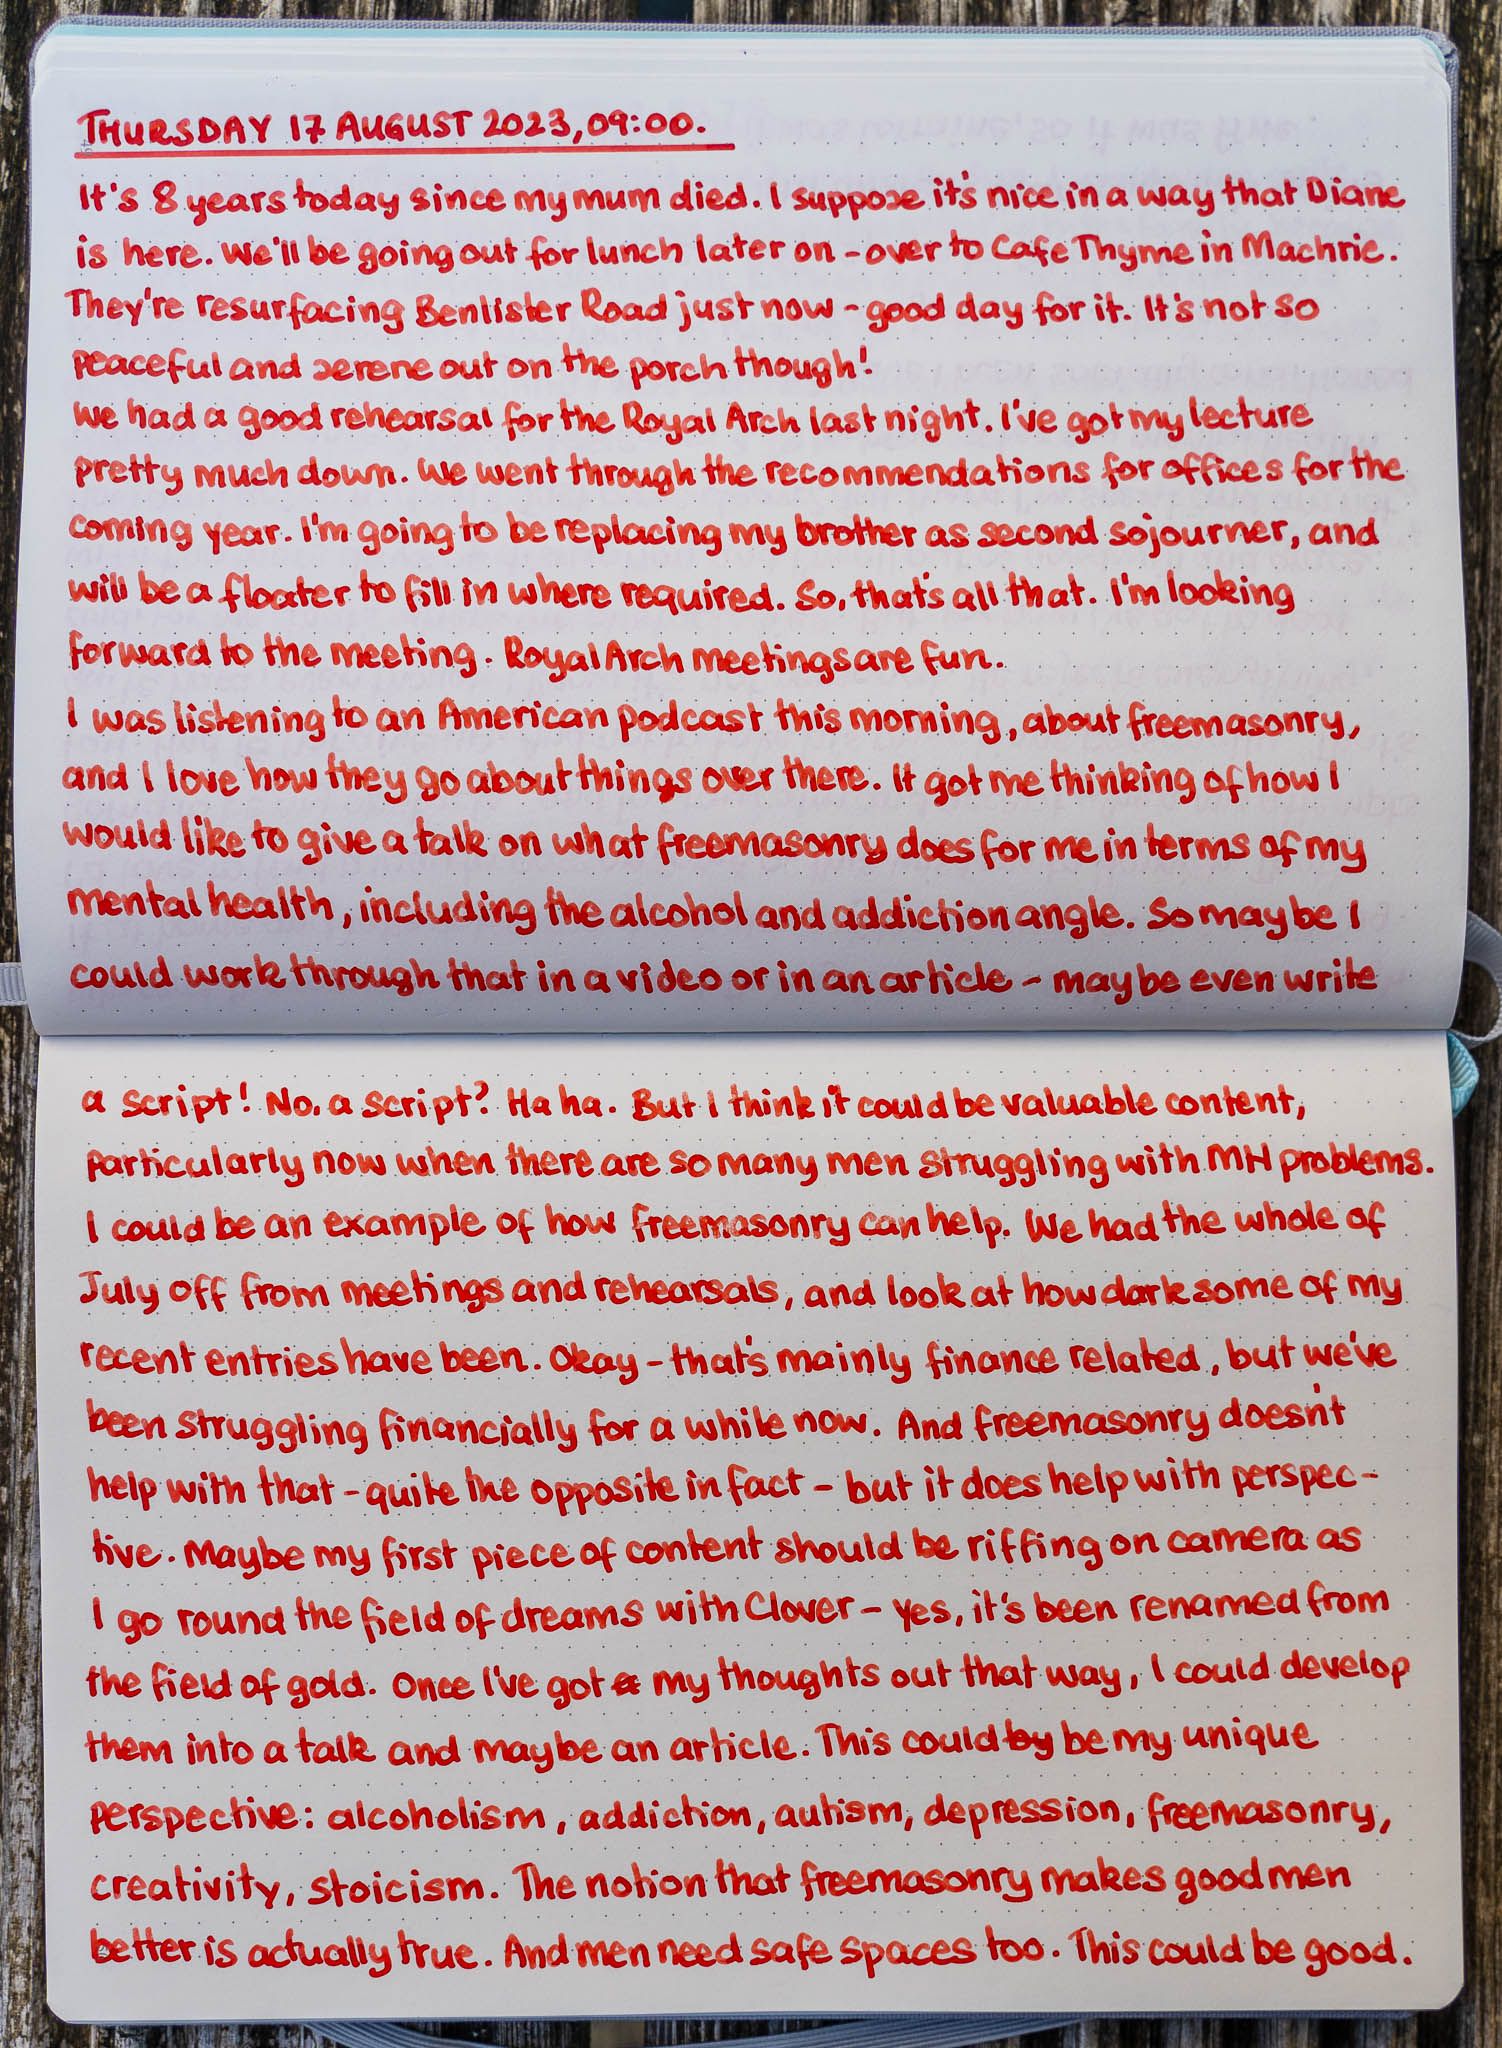 THURSDAY 17 AUGUST 2023, 09:00.
It's 8 years today since my mum died. I suppose it's nice in a way that Diane
is here. We'll be going out for lunch later on - over to Cafe Thyme in Machrie.
They're resurfacing Benlister Road just now - good day for it. It's not so
peaceful and serene out on the porch though!
We had a good rehearsal for the Royal Arch last night. I've got my lecture
pretty much down. We went through the recommendations for offices for the
coming year. I'm going to be replacing my brother as second sojourner, and
will be a floater to fill in where required. So, that's all that. I'm looking
forward to the meeting. Royal Arch meetings are fun.
I was listening to an American podcast this morning, about freemasonry,
and I love how they go about things over there. It got me thinking of how I
would like to give a talk on what freemasonry does for me in terms of my
mental health, including the alcohol and addiction angle. So maybe I
could work through that in a video or in an article - maybe even write
a script! No, a script? Ha ha. But I think it could be valuable content,
particularly now when there are so many men struggling with MH problems.
I could be an example of how freemasonry can help. We had the whole of
July off from meetings and rehearsals, and look at how dark some of my
recent entries have been. Okay - that's mainly finance related, but we've
been struggling financially for a while now. And freemasonry doesn't
help with that - quite the opposite in fact - but it does help with perspec-
tive. Maybe my first piece of content should be riffing on camera as
I go round the field of dreams with Clover - yes, it's been renamed from
the field of gold. Once I've got my thoughts out that way, I could develop
them into a talk and maybe an article. This could by be my unique
perspective: alcoholism, addiction, autism, depression, freemasonry,
creativity, stoicism. The notion that freemasonry makes good men
better is actually true. And men need safe spaces too. This could be good.